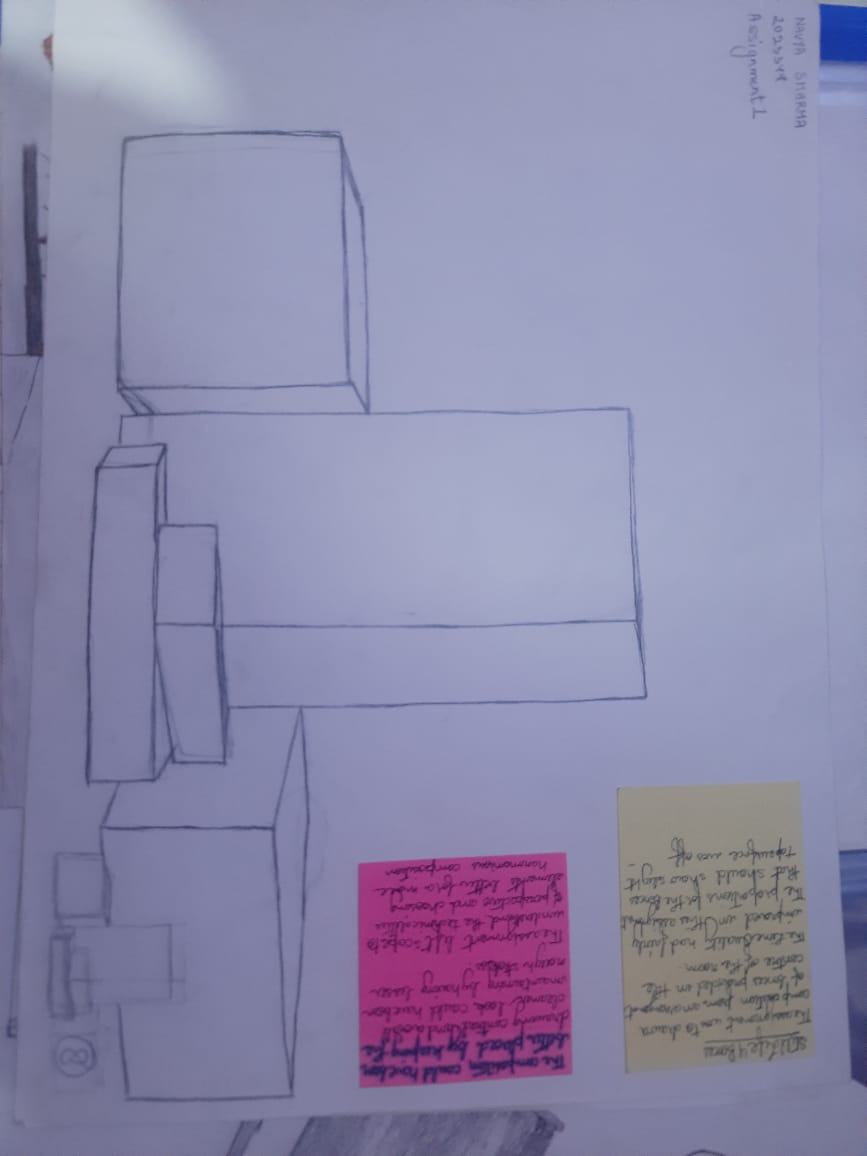 NAVYA SHARMA
Assignment 1
Still Life of Boxes
The assignment was to draw a
composition from arrangement
of boxes projected in the
centre of the room.
The line quality had fairly
improved in this assignment
The proportions for the boxes
that should show slight
top surface was off.
The composition could have been
better placed by keeping the
drawing central and a
cleaner look could have been
maintaining by having lesser
rough
The assignment left scope to
understand the technicalities
of perspective and choosing
elements better for a more
harmonious composition